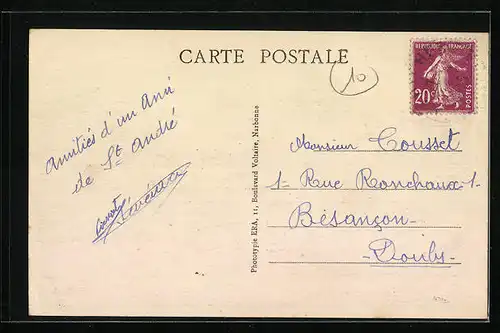 CARTE POSTALE
10
REPUBLIQUE FRANÇAISE
20c
POSTES
Amitiés d'un Ami
de St André
Phototypie ERA, 11, Boulevard Voltaire, Narbonne
Monsieur Cousset
1- Rue Ronchaux-1-
Bésançon-
-Doubs-